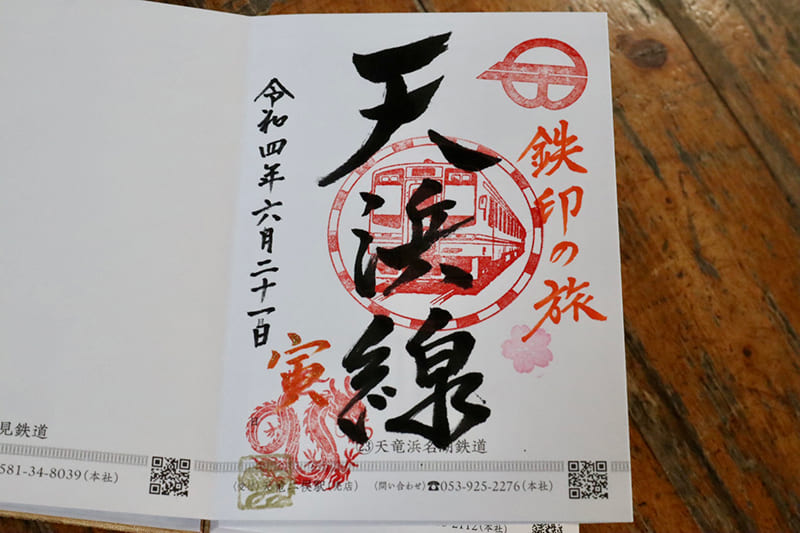 鉄印の旅
天浜線
令和四年六月二十一日
寅
㉓天竜浜名湖鉄道
(問い合わせ)☎053-925-2276(本社)
見鉄道
581-34-8039(本社)
2112(本社)